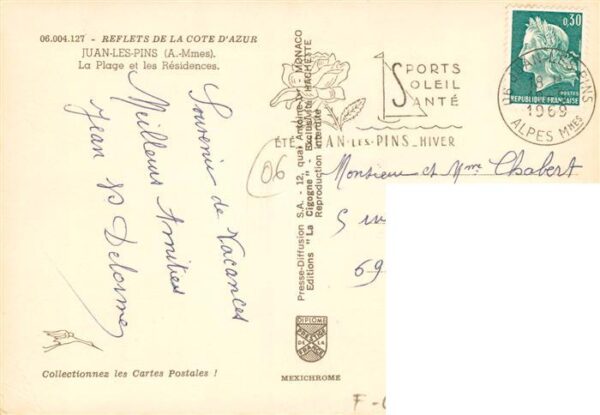 06.004.127 - REFLETS DE LA COTE D'AZUR
JUAN-LES-PINS (A.-Mmes).
La Plage et les Résidences.
Souvenir de Vacances
Meilleurs Amitiés
Jean Delorme
Collectionnez les Cartes Postales !
Presse-Diffusion S.A. - 12, quai Antoine-Ier - MONACO
Editions "La Cigogne" - Exclusivité HACHETTE
Reproduction interdite
DIPLOME
PRESTIGE
DE LA
FRANCE
MEXICHROME
SPORTS
SOLEIL
SANTÉ
ÉTÉ JUAN-LES-PINS_HIVER
0,30
POSTES
REPUBLIQUE FRANÇAISE
06 JUAN-LES-PINS
1969
ALPES Mmes
06
Monsieur et Mme Chabert
69